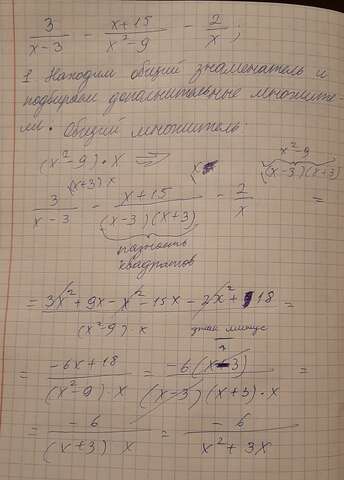 3/(x-3) - (x+15)/(x²-9) - 2/x ;
1. Находим общий знаменатель и
подбираем дополнительные множите-
ли. Общий множитель:
(x²-9)·x ⇒
x²-9
(x-3)(x+3)
(x+3)x
x
3/(x-3) - (x+15)/((x-3)(x+3)) - 2/x =
разность
квадратов
= (3x² + 9x - x² - 15x - 2x² + 18)/((x²-9)·x) =
знак минус
= (-6x+18)/((x²-9)·x) = (-6(x-3))/((x-3)(x+3)·x) =
= (-6)/((x+3)x) = (-6)/(x²+3x)